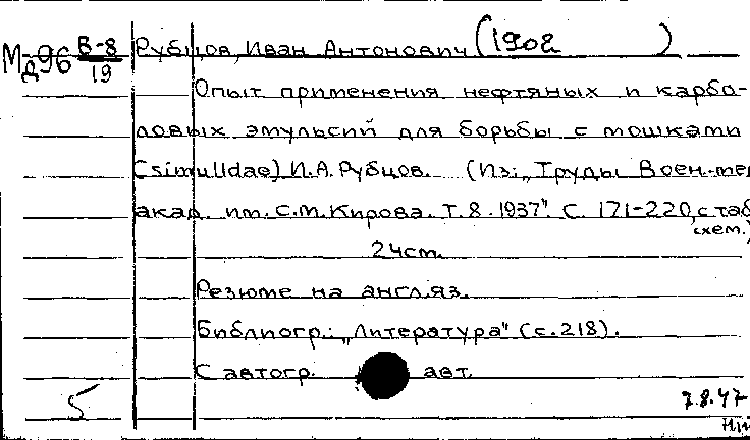 Мд96 В-8/19 Рубцов, Иван Антонович (1902 )
Опыт применения нефтяных и карбо-
ловых эмульсий для борьбы с мошками
(simulIdae) И.А. Рубцов. (Из: „Труды Воен.-ме
акад. им. С.М. Кирова. Т. 8. 1937". С. 171-220, с таб
схем.)
24 cm.
Резюме на англ.яз.
Библиогр.: „Литература" (с. 218).
С автогр. авт.
5
7.8.47